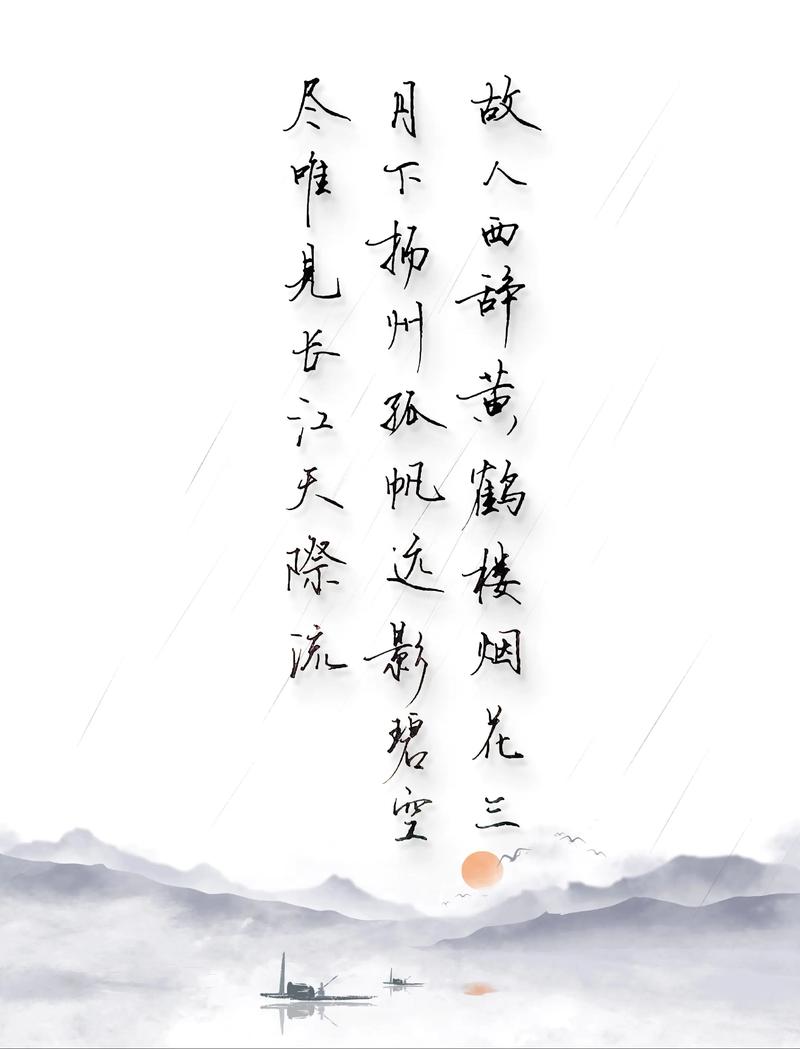 故人西辞黄鹤楼烟花三
月下扬州孤帆远影碧空
尽唯见长江天際流